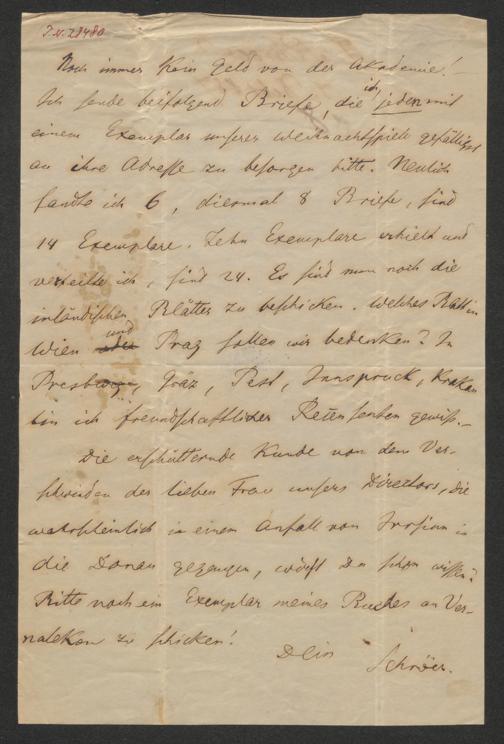 J.N. 28480
Noch immer kein Geld von der Akademie! –
Ich sende beifolgend Briefe, die ich jeden mit
einem Exemplar unserer Weihnachtspiele gefälligst
an ihre Adresse zu besorgen bitte. Neulich
sandte ich 6, diesmal 8 Briefe, sind
14 Exemplare. Zehn Exemplare erhielt und
verteilte ich, sind 24. Es sind nun noch die
inländischen Blätter zu beschicken. Welches Blatt in
Wien oder und Prag sollen wir bedenken? In
Presburg, Graz, Pest, Innspruck, Krakau
bin ich freundschaftlicher Recensenten gewiß. –
Die erschütternde Kunde von dem Ver-
schwinden der lieben Frau unsers Directors, die
wahrscheinlich in einem Anfall von Irrsinn in
die Donau gegangen, wirst Du schon wissen?
Bitte noch ein Exemplar meines Buches an Ver-
naleken zu schicken!
Dein
Schröer.